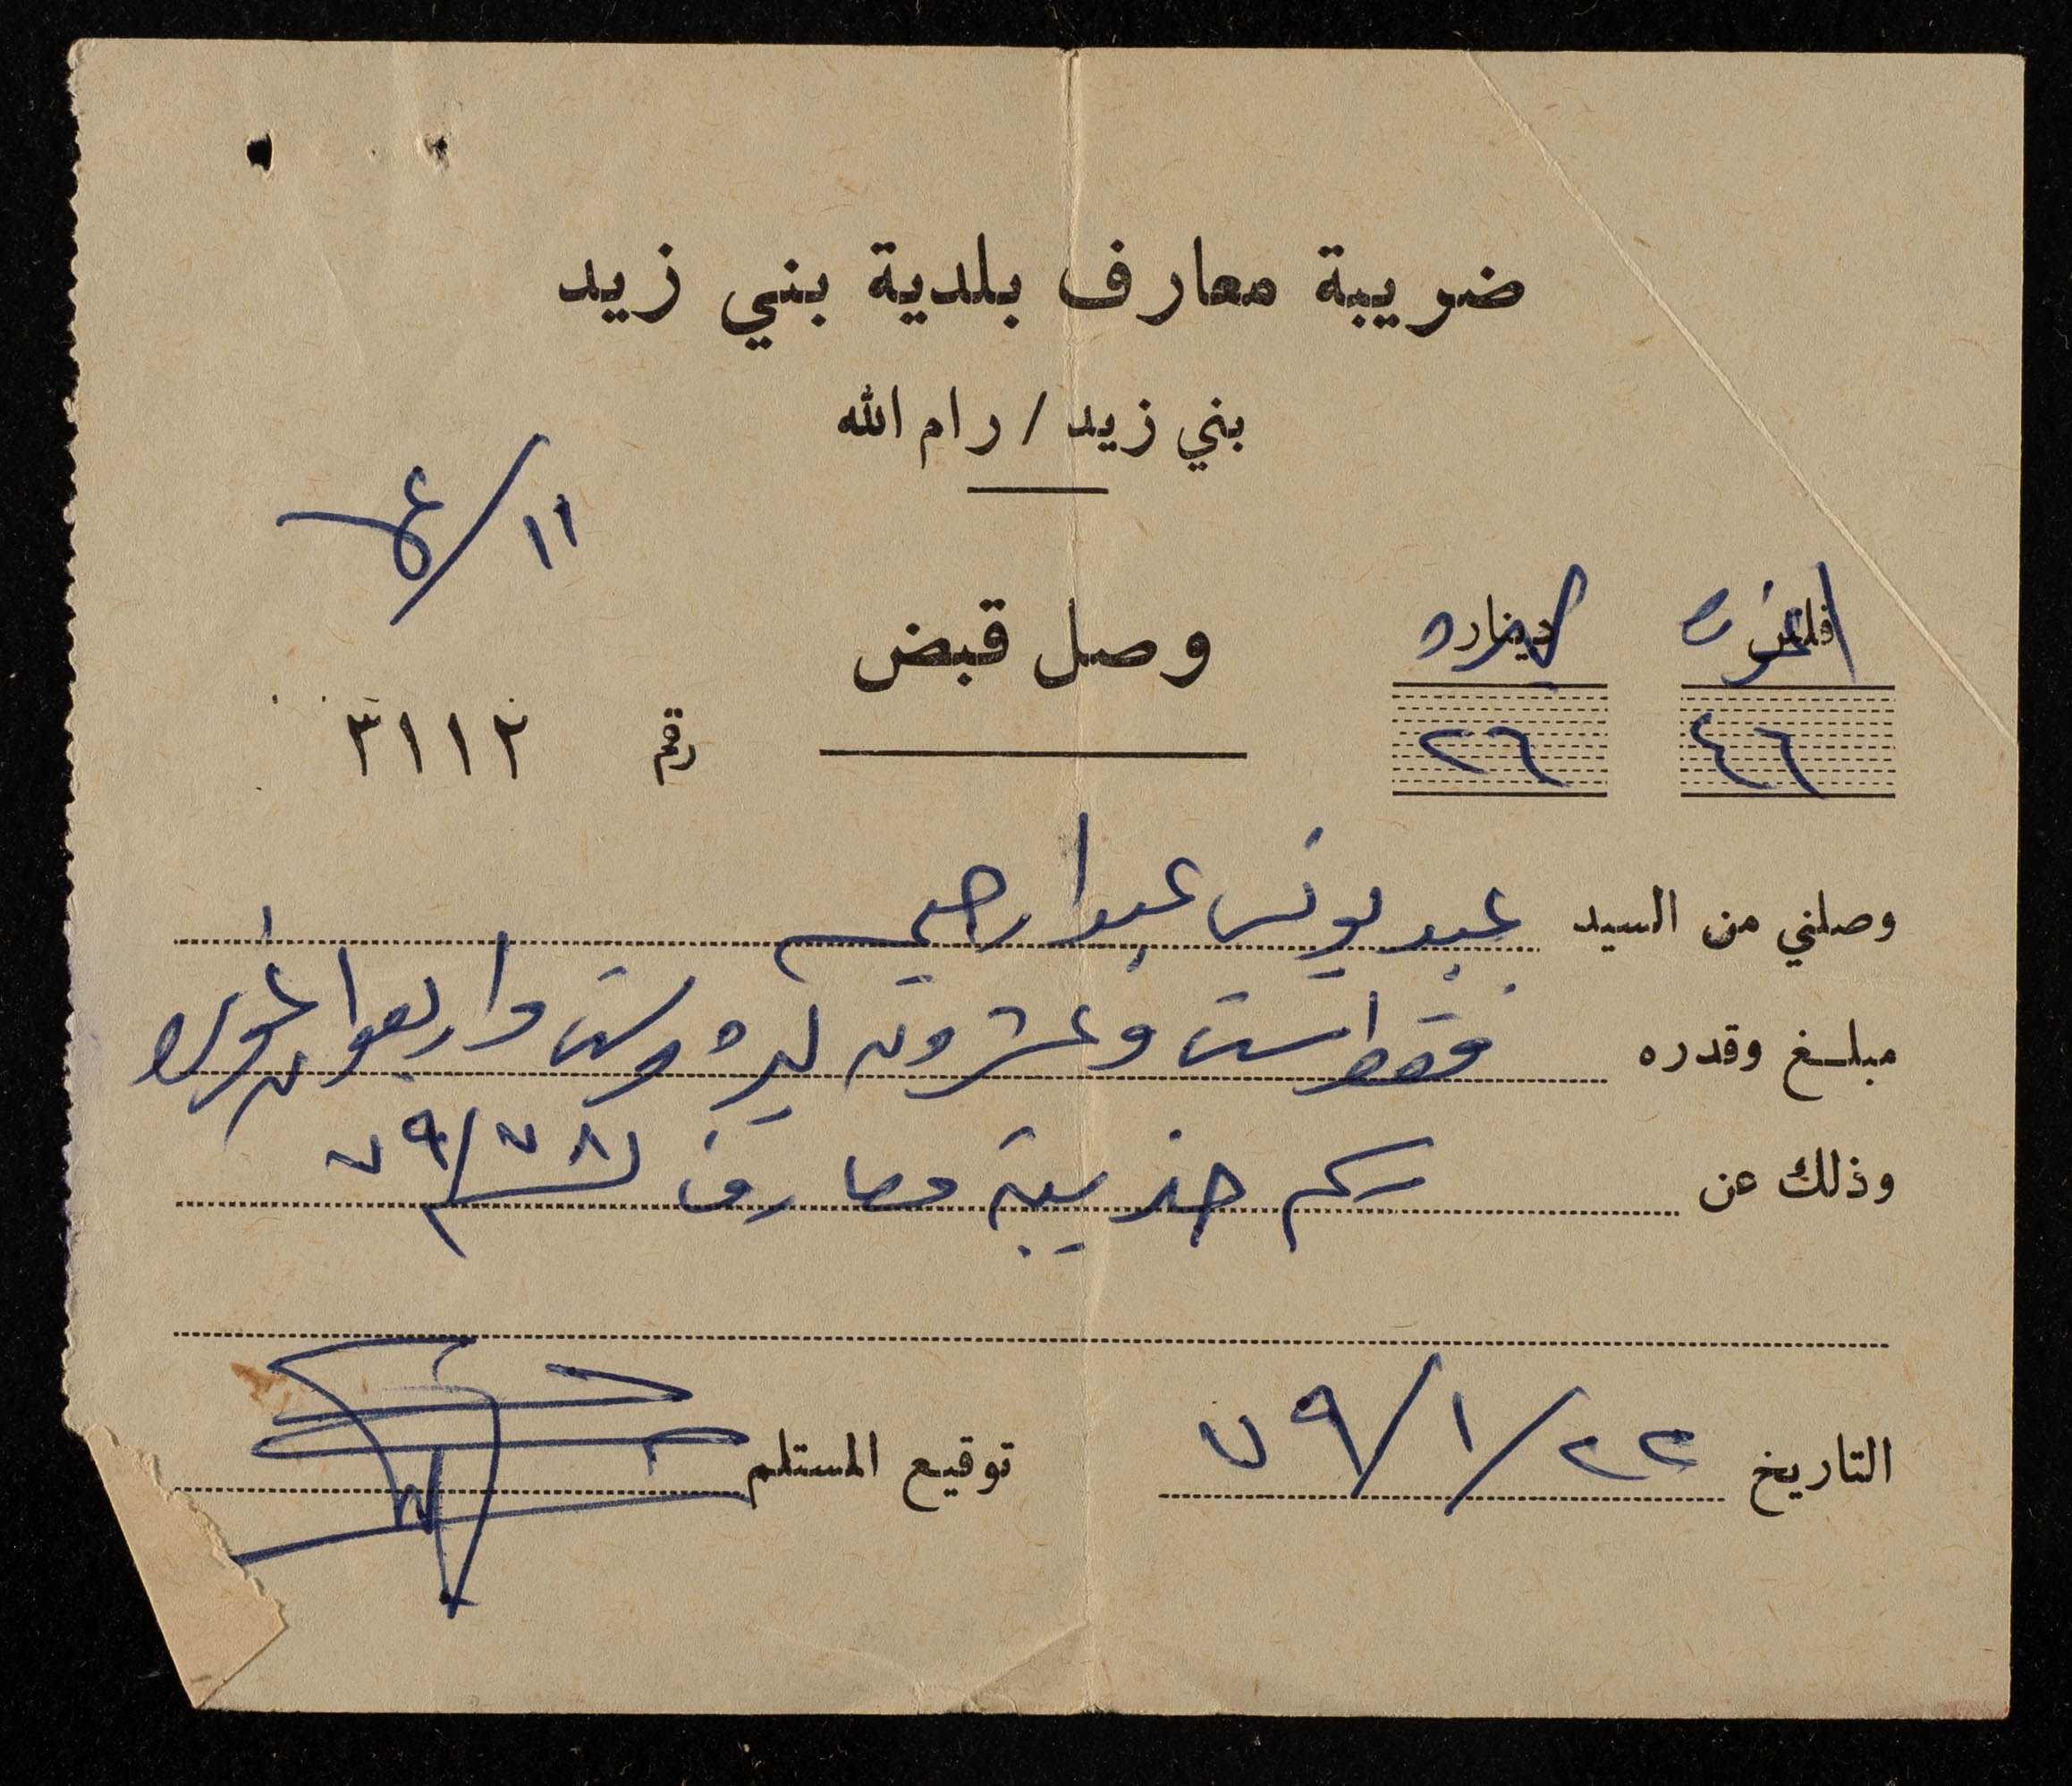 ضريبة معارف بلدية بني زيد
بني زيد / رام الله
١١/ع
وصل قبض
فلس دينار
اغورة ليرة
٤٦ ٢٦
رقم ٣١١٢
وصلني من السيد عبد يونس عبد الرحيم
مبلغ وقدره فقط ست وعشرون ليرة وست واربعون اغورة
وذلك عن رسم ضريبة معارف ٧٩/٧٨
التاريخ ٢٢/١/٧٩ توقيع المستلم